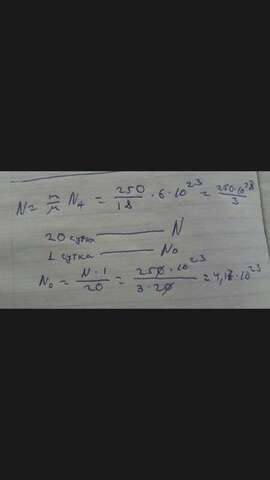 N = m/μ N_A = 250/18 · 6 · 10^23 = 250·10^23/3
20 сутка —— N
1 сутка —— N₀
N₀ = N·1/20 = 250 · 10^23/3 · 20 = 4,17 · 10^23